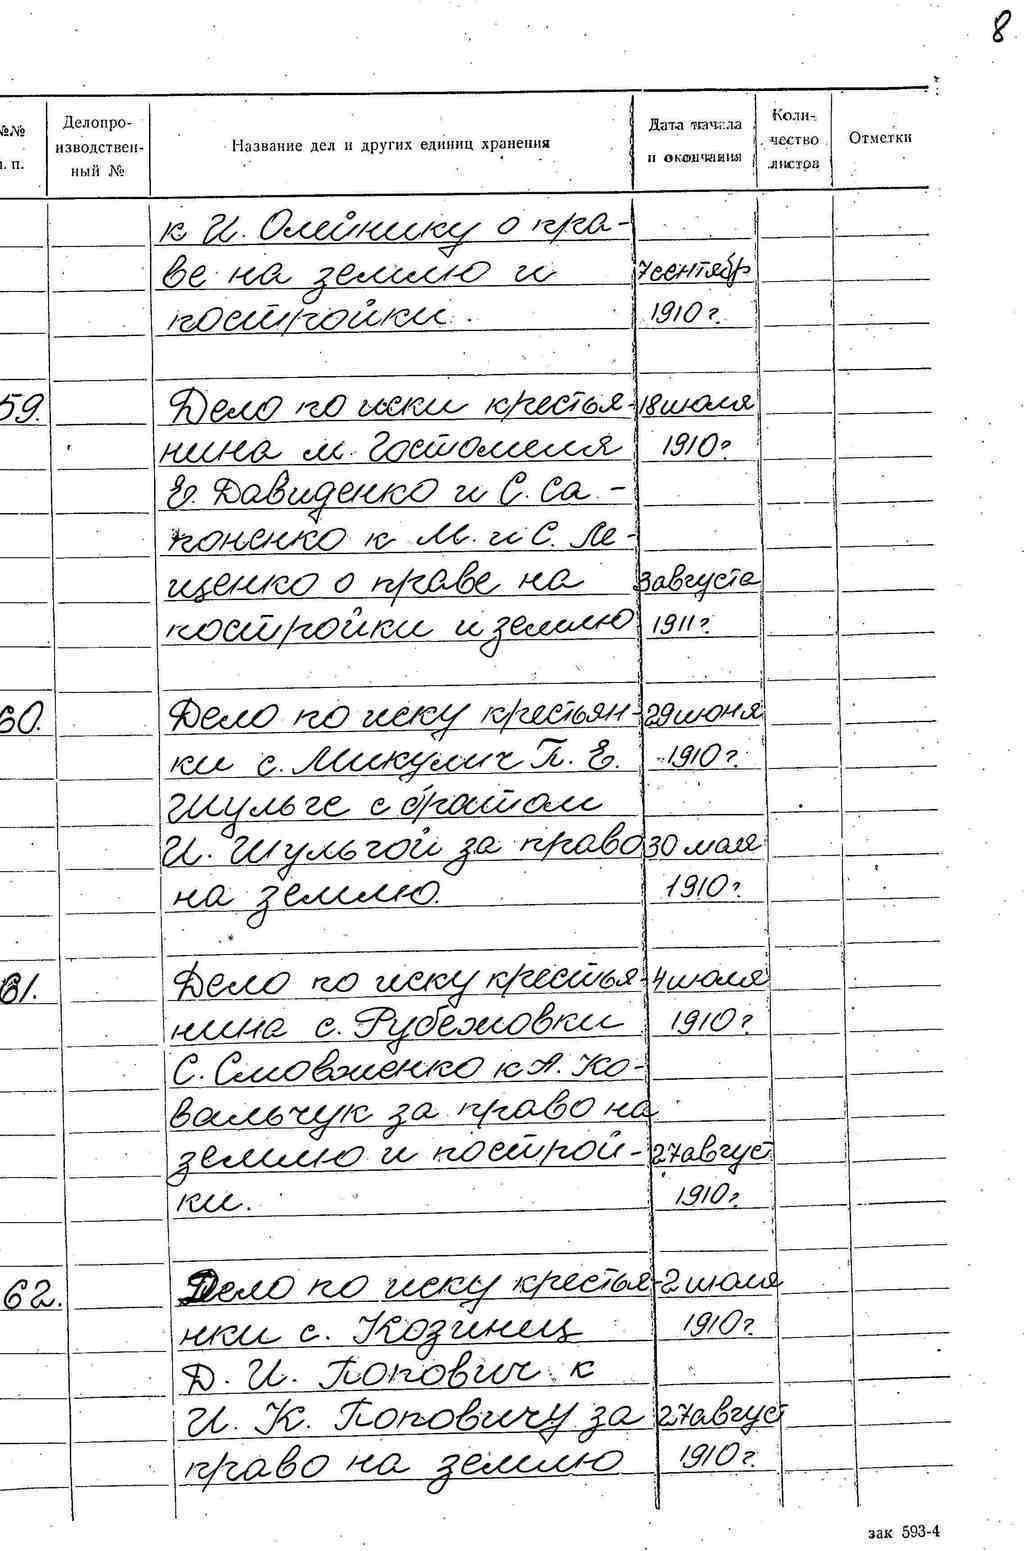 8
№№ п. п.
Делопро-
изводствен-
ный №
Название дел и других единиц хранения
Дата начала
и окончания
Коли-
чество
листов
Отметки
к И. Олейнику о пра-
ве на землю и 7 сентябр
постройки. 1910 г.
59. Дело по иски крестья- 18 июля
нина м. Гостомеля 1910 г
Е. Давиденко и С. Са-
поненко к М. и С. Ле-
щенко о праве на 3 августа
постройки и землю 1911 г.
60. Дело по иску крестьян- 29 июня
ки с. Микулич П. Е. 1910 г.
Шульге с братом
И. Шульгой за право 30 мая
на землю. 1910 г.
61. Дело по иску крестья- 4 июля
нина с. Рубежовки 1910 г.
С. Смовженко к А. Ко-
вальчук за право на
землю и построй- 27 август
ки. 1910 г.
62. Дело по иску крестья- 2 июля
нки с. Козинец 1910 г.
Д. И. Попович к
И. К. Поповичу за 27 август
право на землю 1910 г.
зак 593-4